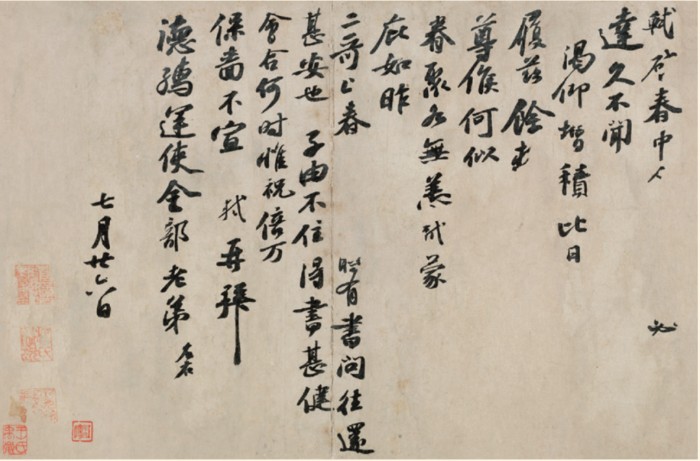 軾啓春中人必
達久不聞
渴仰增積比日
履茲餘熱
尊候何似
眷聚各無恙軾蒙
庇如昨
二哥上春
時有書問往還
甚安也子由不住得書甚健
會合何時惟祝倍万
保嗇不宣軾再拜
德孺運使金部老弟左右
七月廿六日